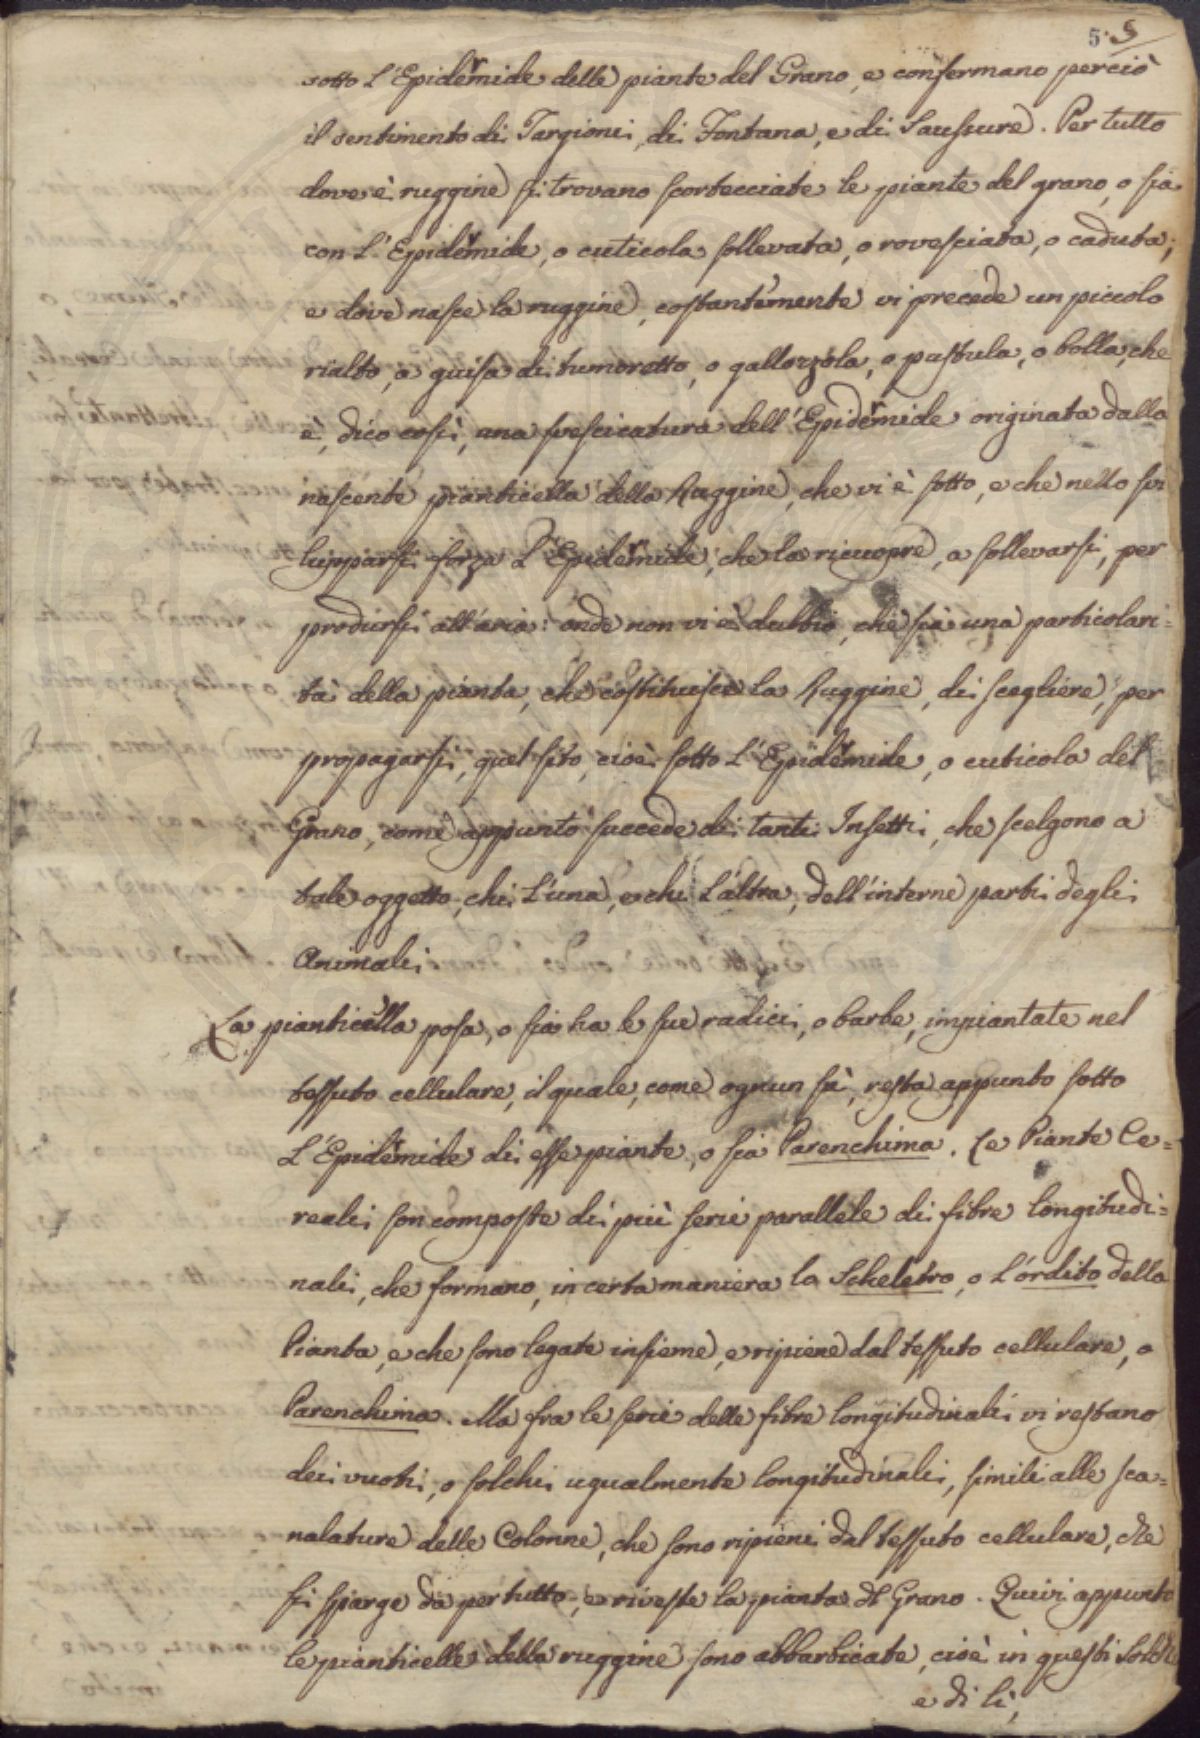 5. 5
sotto l'Epidermide delle piante del Grano, e confermano perciò
il sentimento di Targioni, di Fontana, e di Saussure. Per tutto
dove è ruggine si trovano scortecciate le piante del grano, o sia
con l'Epidermide, o cuticola sollevata, o rovesciata, o caduta;
e dove nasce la ruggine, costantemente vi precede un piccolo
rialto, a guisa di tumoretto, o gallozzola, o pustula, o bolla, che
è, dico così, una svescicatura dell'Epidermide originata dalla
nascente pianticella della Ruggine, che vi è sotto, e che nello svi
lupparsi forza l'Epidermide, che la ricuopre, a sollevarsi, per
prodursi all'aria: onde non vi è dubbio, che sia una particolari=
tà della pianta, che costituisce la Ruggine, di scegliere, per
propagarsi, quel sito, cioè sotto l'Epidermide, o cuticola del
Grano, come appunto succede di tanti Insetti, che scelgono a
tale oggetto, chi l'una, e chi l'altra, dell'interne parti degli
Animali.
La pianticella posa, o sia ha le sue radici, o barbe, impiantate nel
tessuto cellulare, il quale, come ognun sà, resta appunto sotto
l'Epidermide di esse piante, o sia Parenchima. Le Piante Ce=
reali son composte di più serie parallele di fibre longitudi=
nali, che formano, in certa maniera lo Scheletro, o l'ordito della
Pianta, e che sono legate insieme, e ripiene dal tessuto cellulare, o
Parenchima. Ma fra le serie delle fibre longitudinali vi restano
dei vuoti, o solchi ugualmente longitudinali, simili alle sca=
nalature delle Colonne, che sono ripieni dal tessuto cellulare, che
si sparge da per tutto, e riveste la pianta del Grano. Quivi appunto
le pianticelle della ruggine sono abbarbicate, cioè in questi solchi
e di lì,